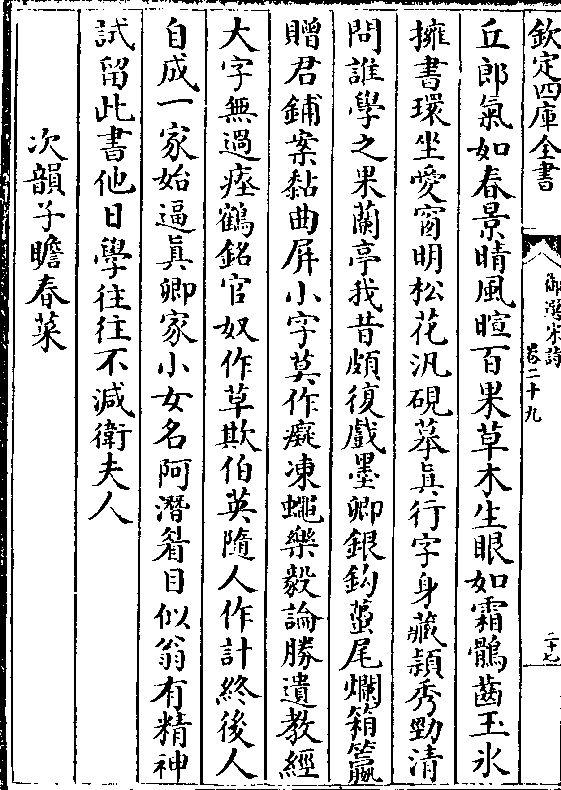 欽定四庫全書
御選宋詩
卷二十九
二十七
丘郎氣如春景晴風暄百果草木生眼如霜鶻齒玉氷
擁書環坐愛窗明松花汎硯摹眞行字身藏頴秀勁清
問誰學之果蘭亭我昔頗復戲墨卿銀鈎蠆尾爛箱籯
贈君鋪案黏曲屏小字莫作癡凍蠅樂毅論勝遺教經
大字無過瘞鶴銘官奴作草欺伯英隨人作計終後人
自成一家始逼眞卿家小女名阿潛眉目似翁有精神
試留此書他日學往往不減衛夫人
次韻子瞻春菜